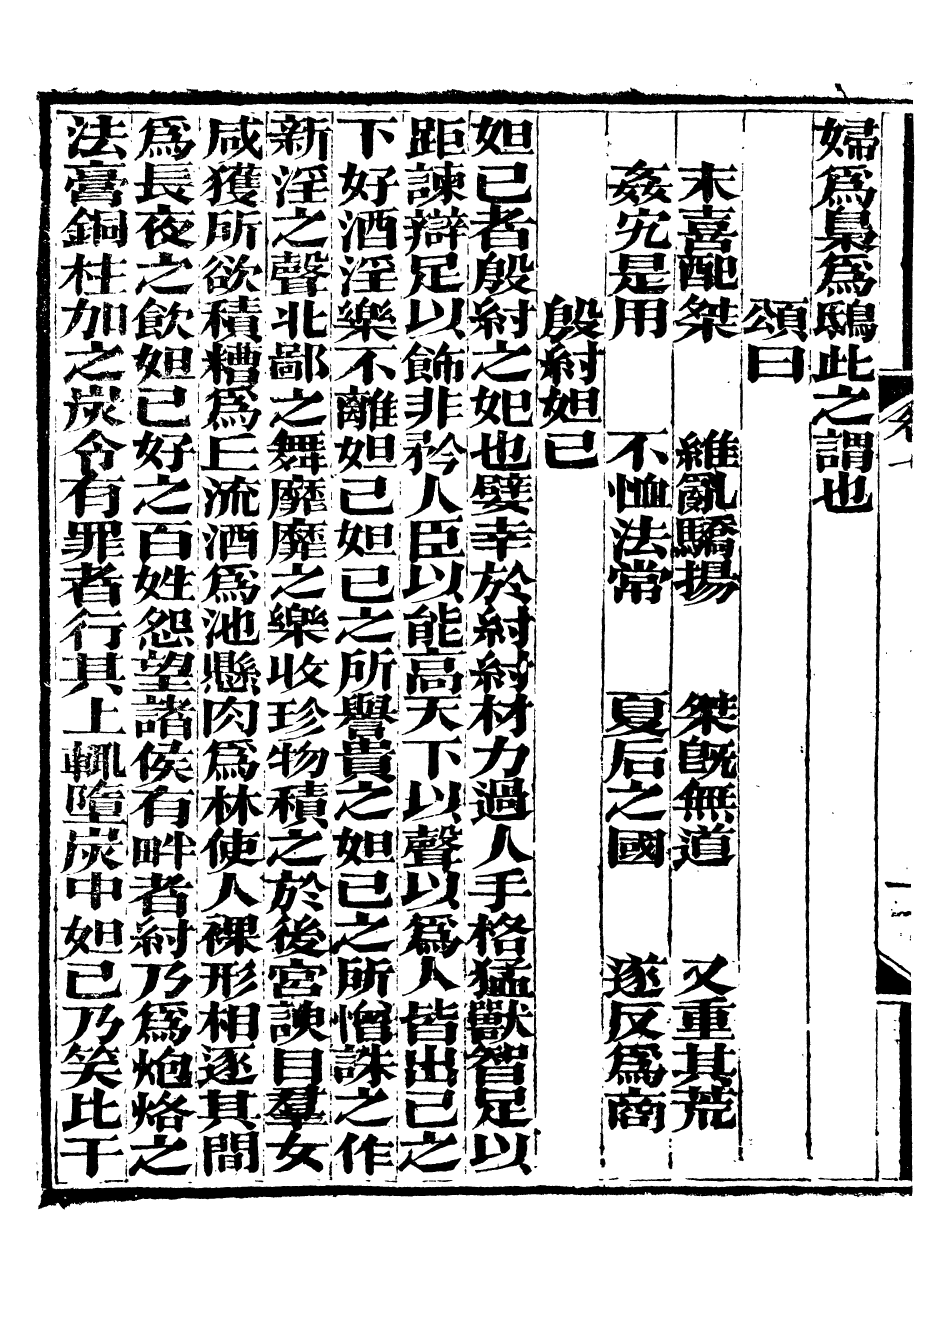 婦爲梟爲鴟此之謂也
頌曰
末喜配桀　維亂驕揚　桀旣無道　又重其荒
姦宄是用　不恤法常　夏后之國　遂反爲商
殷紂妲己
妲己者殷紂之妃也嬖幸於紂紂材力過人手格猛獸智足以
距諫辯足以飾非矜人臣以能高天下以聲以爲人皆出己之
下好酒淫樂不離妲己妲己之所譽貴之妲己之所憎誅之作
新淫之聲北鄙之舞靡靡之樂收珍物積之於後宮諛臣羣女
咸獲所欲積糟爲丘流酒爲池懸肉爲林使人裸形相逐其間
爲長夜之飲妲己好之百姓怨望諸侯有畔者紂乃爲炮烙之
法膏銅柱加之炭令有罪者行其上輒墮炭中妲己乃笑比干